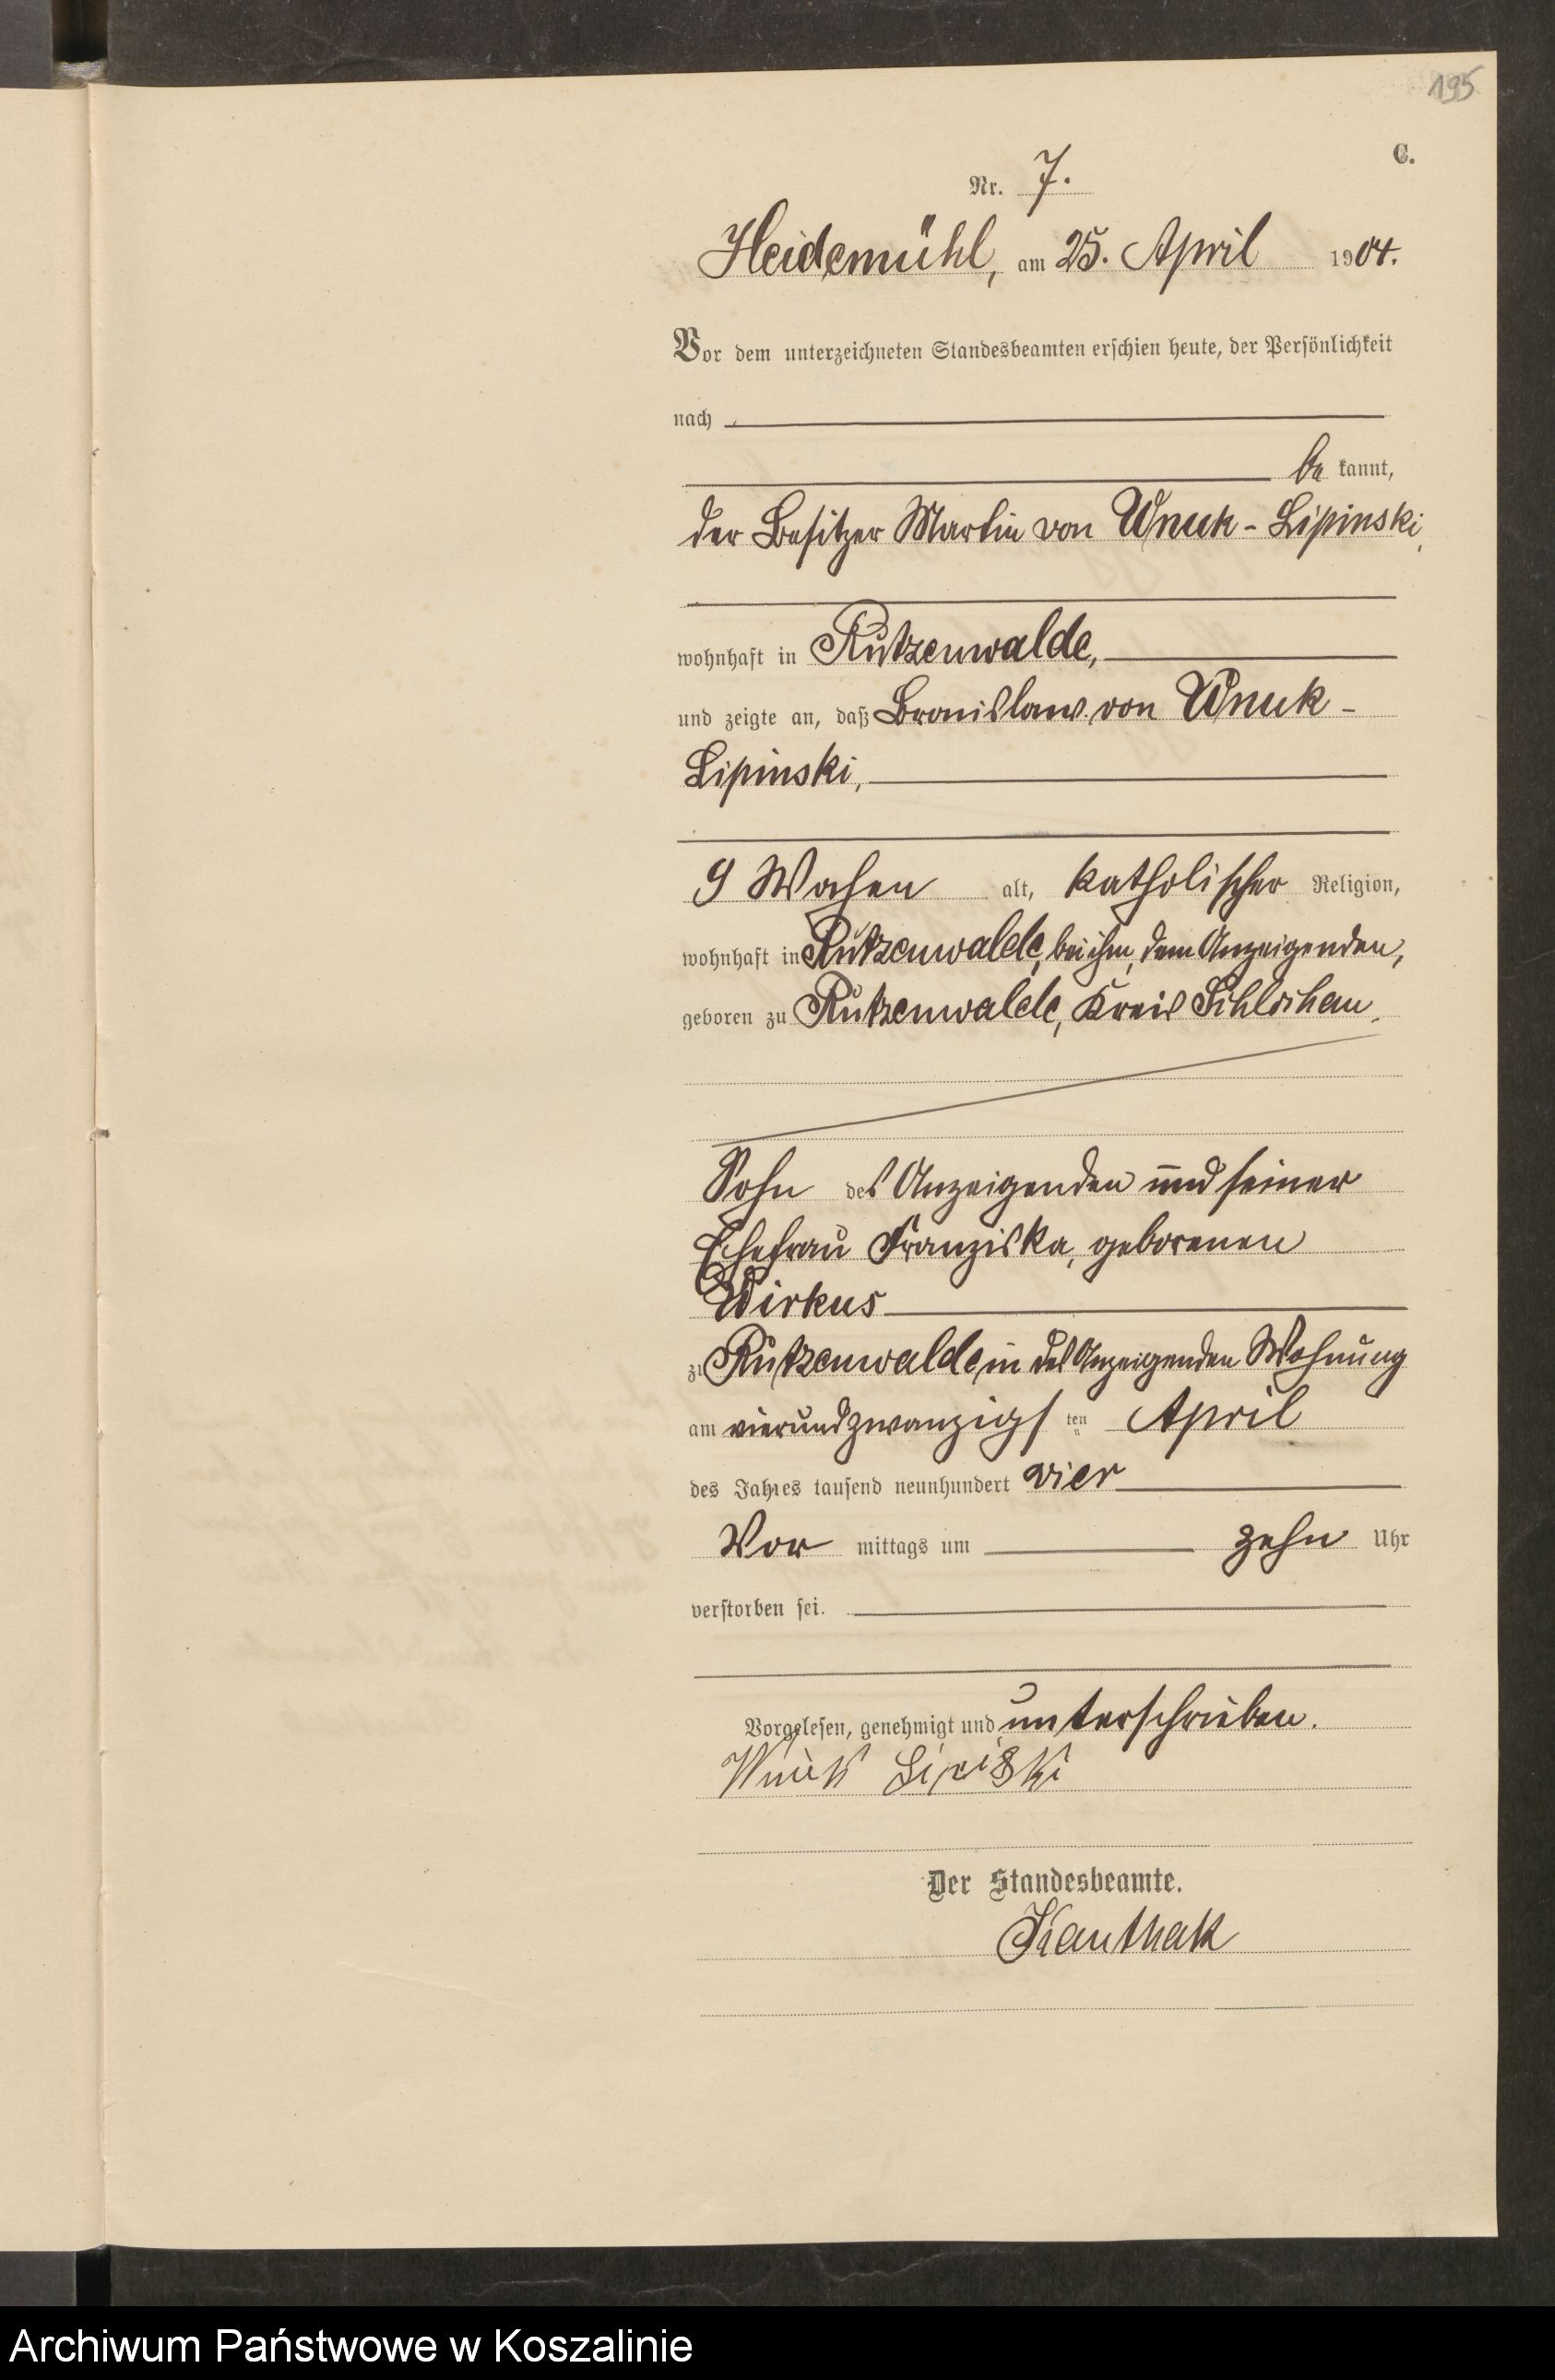 195
C.
Nr. 7.
Heidemühl, am 25. April 1904.
Vor dem unterzeichneten Standesbeamten erschien heute, der Persönlichkeit
nach
be kannt,
der Besitzer Martin von Wnuk-Lipinski,
wohnhaft in Rutzenwalde,
und zeigte an, daß Bronislaw von Wnuk-
Lipinski,
9 Wochen alt, katholischer Religion,
wohnhaft in Rutzenwalde, bei ihm, dem Anzeigenden,
geboren zu Rutzenwalde, Kreis Schlochau.
Sohn des Anzeigenden und seiner
Ehefrau Franziska, geborenen
Wirkus
zu Rutzenwalde in des Anzeigenden Wohnung
am vierundzwanzigsten April
des Jahres tausend neunhundert vier
Vor mittags um zehn Uhr
verstorben sei.
Vorgelesen, genehmigt und unterschrieben.
Wnuk
Der Standesbeamte.
Kanthak
Archiwum Państwowe w Koszalinie